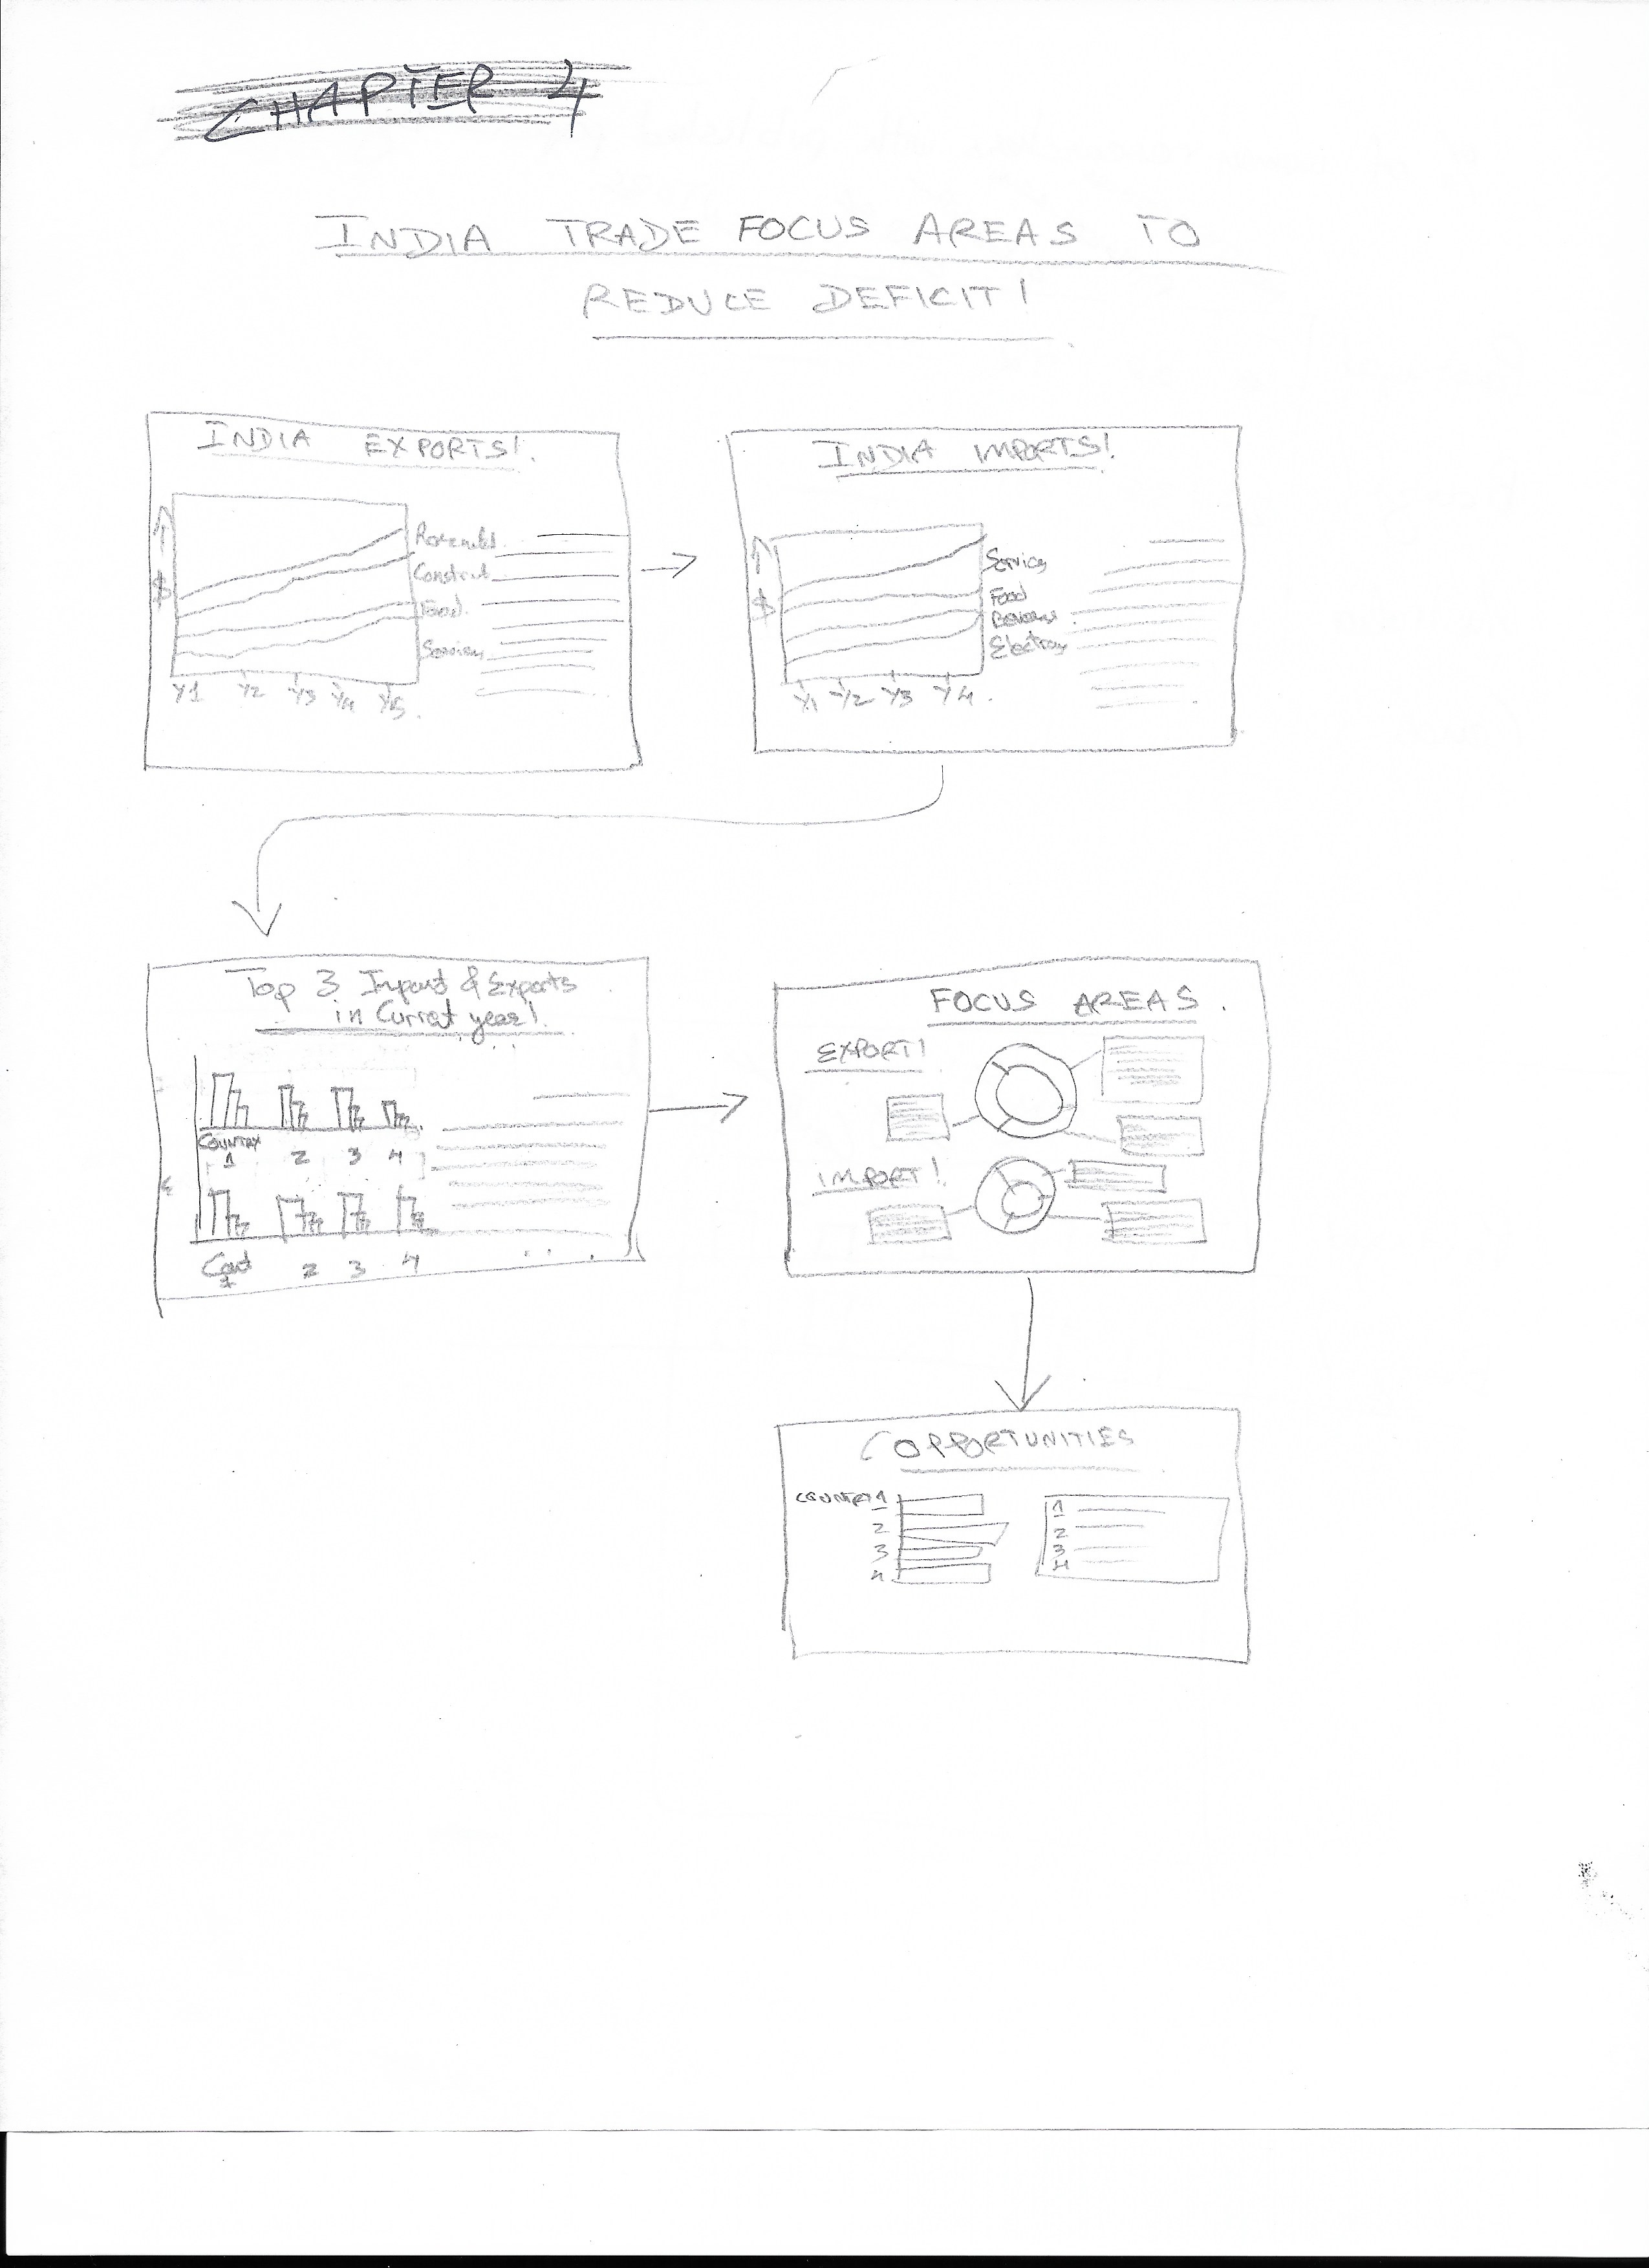 CHAPTER 4
INDIA TRADE FOCUS AREAS TO
REDUCE DEFICIT!
INDIA EXPORTS!
$
Construct
Food
Services
Y1 Y2 Y3 Y4 Y5
INDIA IMPORTS!
$
Services
Food
Electrony
Y1 Y2 Y3 Y4
Top 3 Import & Exports
in Current year!
COUNTRY
1 2 3 4
Cout
1 2 3 4
FOCUS AREAS
EXPORT!
IMPORT!
OPPORTUNITIES
COUNTRY 1
2
3
4
1
2
3
4